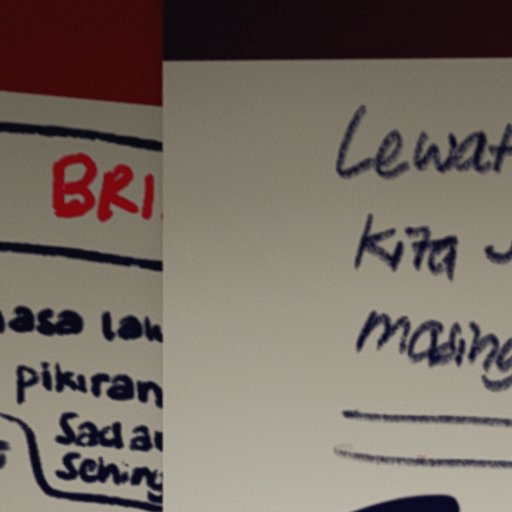 BRI
asa lak
pikiran
Sadar
Sehing
Lewat
Kita
masing